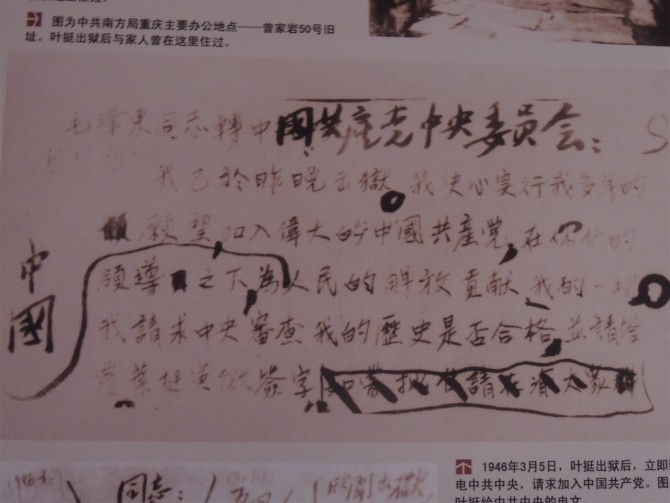 图为中共南方局重庆主要办公地点——曾家岩50号旧
址。叶挺出狱后与家人曾在这里住过。
毛泽東同志轉中國共產党中央委员会：
我已於昨晚出獄，我决心实行我多年的
願望加入偉大的中國共產党，在你们的
中國
領導之下為人民的解放貢献我的一切
我請求中央審查我的歷史是否合格並請答
同志：
1946年3月5日，叶挺出狱后，立即
电中共中央，请求加入中国共产党。图
叶挺给中共中央的电文